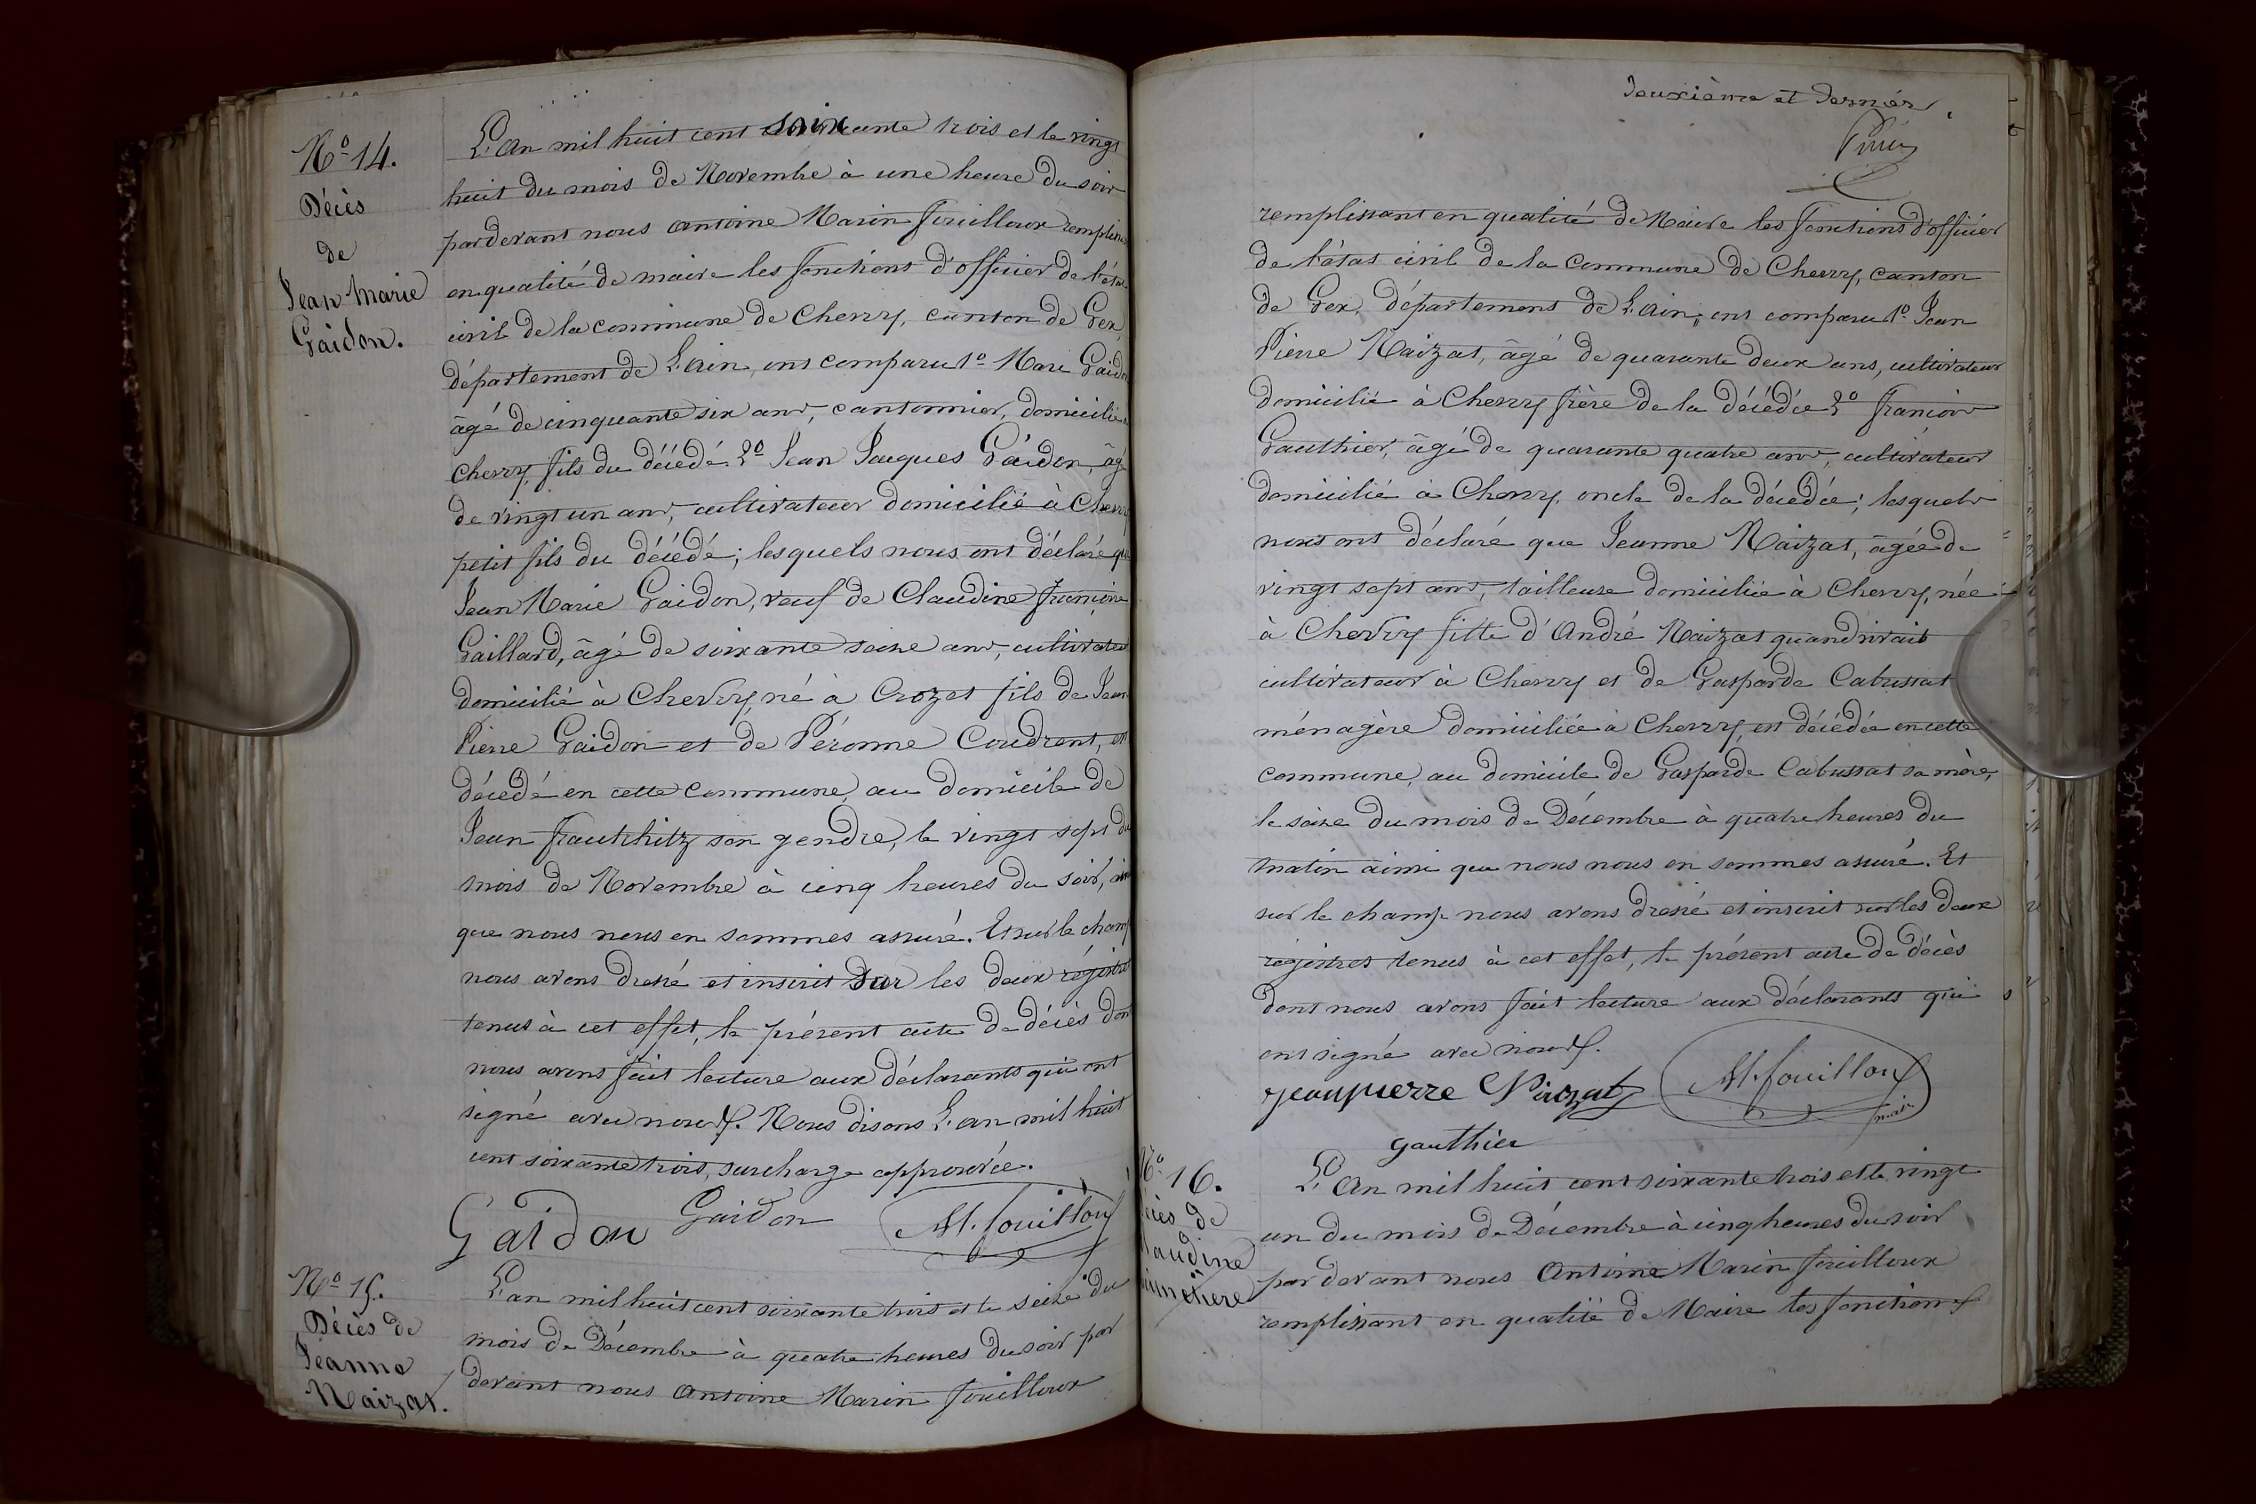 No 14.
Décès
de
Jean Marie
Gaidon.
L'an mil huit cent soixante trois et le vingt
huit du mois de Novembre à une heure du soir
pardevant nous Antoine Marin Fouilloux
en qualité de maire les fonctions d'officier de l'état
civil de la commune de Chevry, canton de Gex,
département de L'Ain, ont comparu 1o Marc Gaidon
âgé de cinquante six ans, cantonnier, domicilié
Chevry, fils du décédé 2o Jean Jacques Gaidon, âgé
de vingt un ans, cultivateur domicilié à Chevry
petit fils du décédé; lesquels nous ont déclaré que
Jean Marie Gaidon, veuf de Claudine Françoise
Gaillard, âgé de soixante seize ans, cultivateur
domicilié à Chevry, né à Crozet fils de Jean
Pierre Gaidon et de Péronne Coudrent, est
décédé en cette commune, au domicile de
Jean son gendre, le vingt sept du
mois de Novembre à cinq heures du soir, ainsi
que nous nous en sommes assuré. Et sur le champ
nous avons dressé et inscrit sur les deux régistres
tenus à cet effet, le présent acte de décès dont
nous avons fait lecture aux déclarants qui ont
signé avec nous. Nous disons L'an mil huit
cent soixante trois, surcharge approuvée.
Gaidon Gaidon AM. fouilloux
No 15.
Décès de
Jeanne
Maizat.
L'an mil huit cent soixante trois et le seize du
mois de Décembre à quatre heures du soir par
devant nous Antoine Marin Fouilloux
deuxième et dernier
remplissant en qualité de Maire les fonctions d'officier
de l'état civil de la Commune de Chevry, canton
de Gex, département de L'Ain, ont comparu 1o Jean
Pierre Maizat, âgé de quarante deux ans, cultivateur
domicilié à Chevry frère de la décédée 2o François
Gauthier, âgé de quarante quatre ans, cultivateur
domicilié à Chevry, oncle de la décédée; lesquels
nous ont déclaré que Jeanne Maizat, âgée de
vingt sept ans, tailleuse domiciliée à Chevry, née
à Chevry fille d'André Maizat quand vivait
cultivateur à Chevry et de Gasparde Cabussat
ménagère domiciliée à Chevry, est décédée en cette
commune, au domicile de Gasparde Cabussat sa mère,
le seize du mois de Décembre à quatre heures du
matin ainsi que nous nous en sommes assuré. Et
sur le champ nous avons dressé et inscrit sur les deux
régistres tenus à cet effet, le présent acte de décès
dont nous avons fait lecture aux déclarants qui
ont signé avec nous.
jean pierre AM. fouilloux
maire
gauthier
No 16.
Décès de
Claudine
L'An mil huit cent soixante trois et le vingt
un du mois de Décembre à cinq heures du soir
par devant nous Antoine Marin Fouilloux
remplissant en qualité de Maire les fonctions